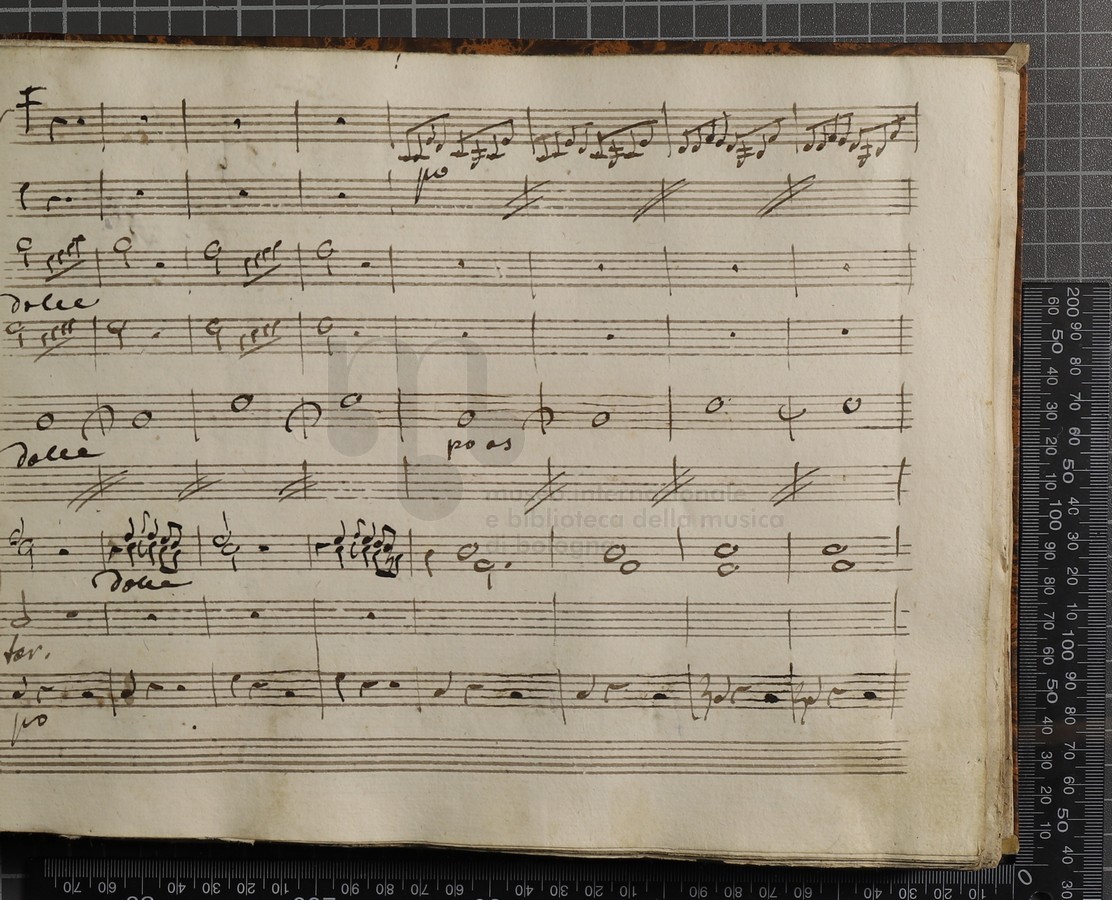 po
dolce
dolce
po as
museo internazionale
e biblioteca della musica
di bologna
dolce
for.
po